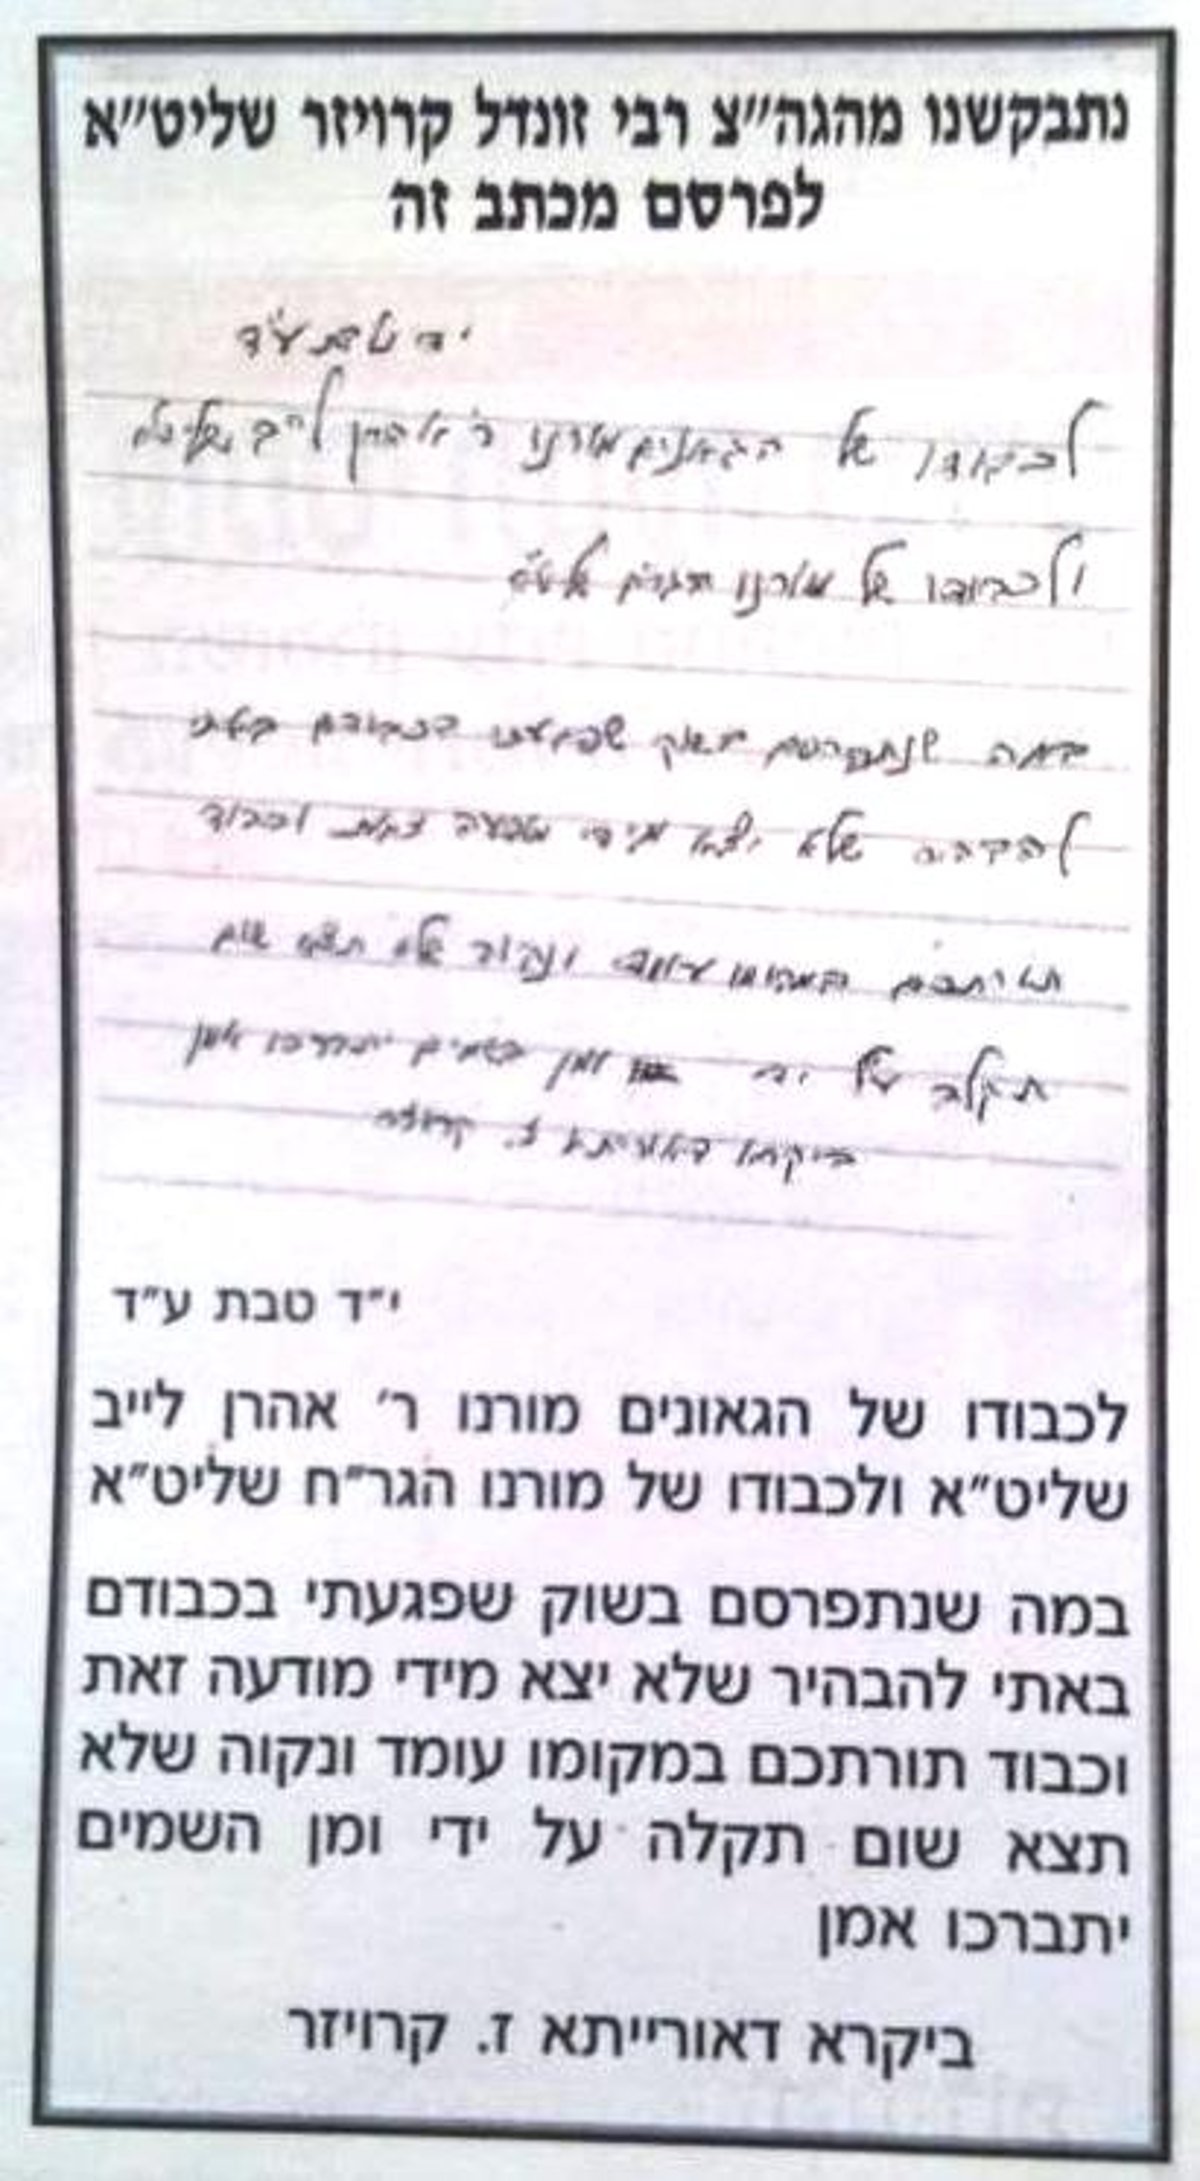 נתבקשנו מהגה"צ רבי זונדל קרויזר שליט"א
לפרסם מכתב זה
י"ד טבת ע"ד
לכבודו של הגאונים מורנו ר' אהרן לייב שליט"א
ולכבודו של מורנו הגר"ח שליט"א
במה שנתפרסם בשוק שפגעתי בכבודם באתי
להבהיר שלא יצא מידי מודעה זאת וכבוד
תורתכם במקומו עומד ונקוה שלא תצא שום
תקלה על ידי ומן השמים יתברכו אמן
ביקרא דאורייתא ז. קרויזר
י"ד טבת ע"ד
לכבודו של הגאונים מורנו ר' אהרן לייב
שליט"א ולכבודו של מורנו הגר"ח שליט"א
במה שנתפרסם בשוק שפגעתי בכבודם
באתי להבהיר שלא יצא מידי מודעה זאת
וכבוד תורתכם במקומו עומד ונקוה שלא
תצא שום תקלה על ידי ומן השמים
יתברכו אמן
ביקרא דאורייתא ז. קרויזר